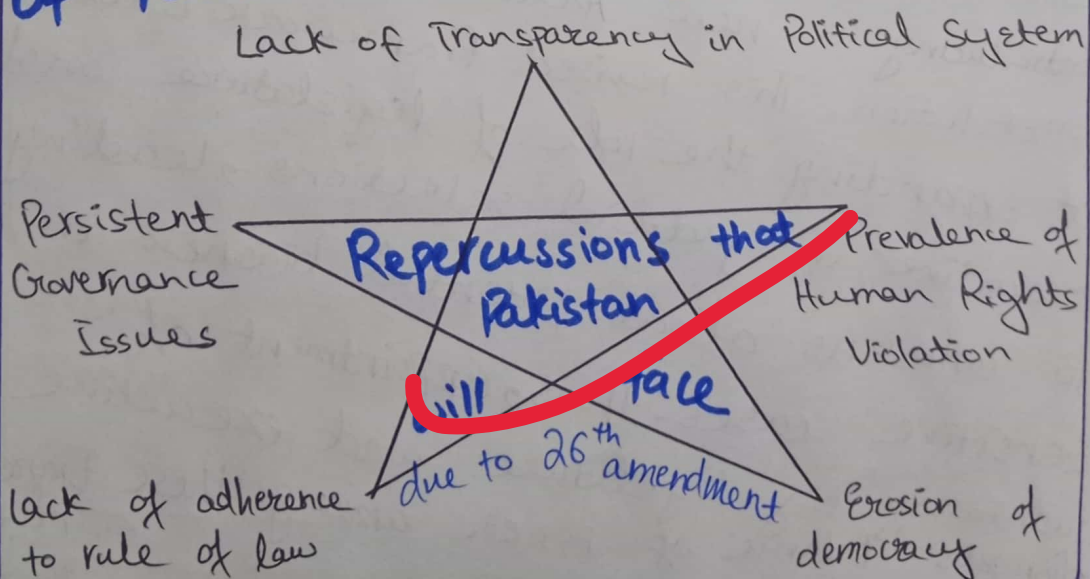 Lack of Transparency in Political System
Persistent
Governance
Issues
Repercussions that
Pakistan
will face
due to 26th amendment
Prevalence of
Human Rights
Violation
Lack of adherence
to rule of law
Erosion of
democracy